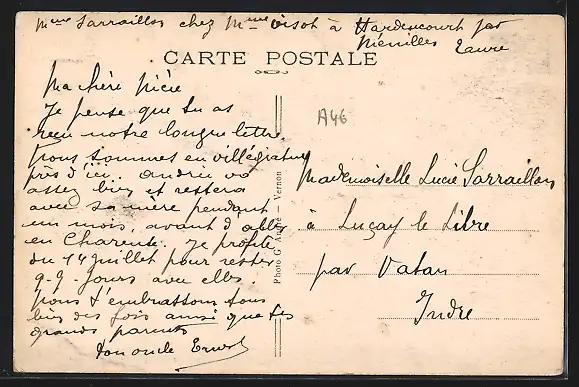 Mme Sarraillon chez Mme Visot à Hardencourt par
Ménilles Eure
CARTE POSTALE
Ma chère Nièce
Je pense que tu as
reçu notre longue lettre.
Nous sommes en villégiature
près d'ici. Andrée va
assez bien et restera
avec sa mère pendant
un mois, avant d'aller
en Charente. Je profite
du 14 juillet pour rester
8-9 jours avec elles.
Nous t'embrassons tous
bien des fois ainsi que tes
grands parents
Ton oncle Ernest
Photo G. - Vernon
A46
Mademoiselle Lucie Sarraillon
à Luçay le Libre
par Vatan
Indre